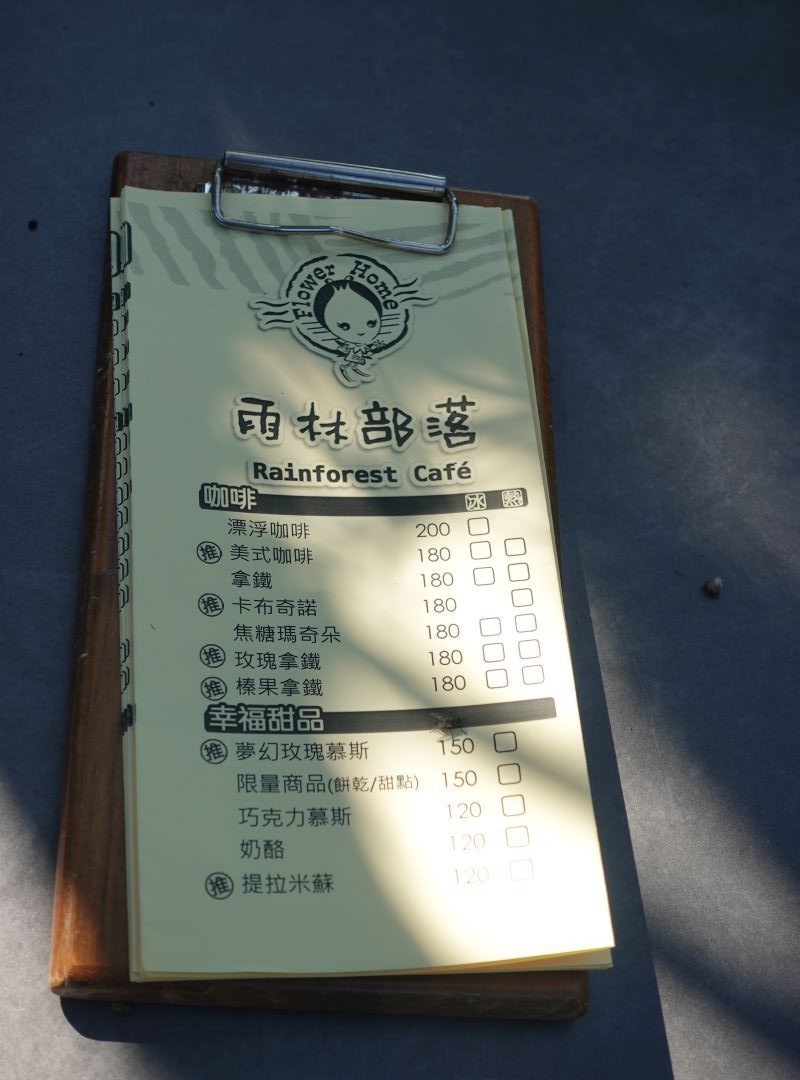 Flower Home
雨林部落
Rainforest Café
咖啡 冰 熱
漂浮咖啡 200
推 美式咖啡 180
拿鐵 180
推 卡布奇諾 180
焦糖瑪奇朵 180
推 玫瑰拿鐵 180
推 榛果拿鐵 180
幸福甜品
推 夢幻玫瑰慕斯 150
限量商品(餅乾/甜點) 150
巧克力慕斯 120
奶酪 120
推 提拉米蘇 120